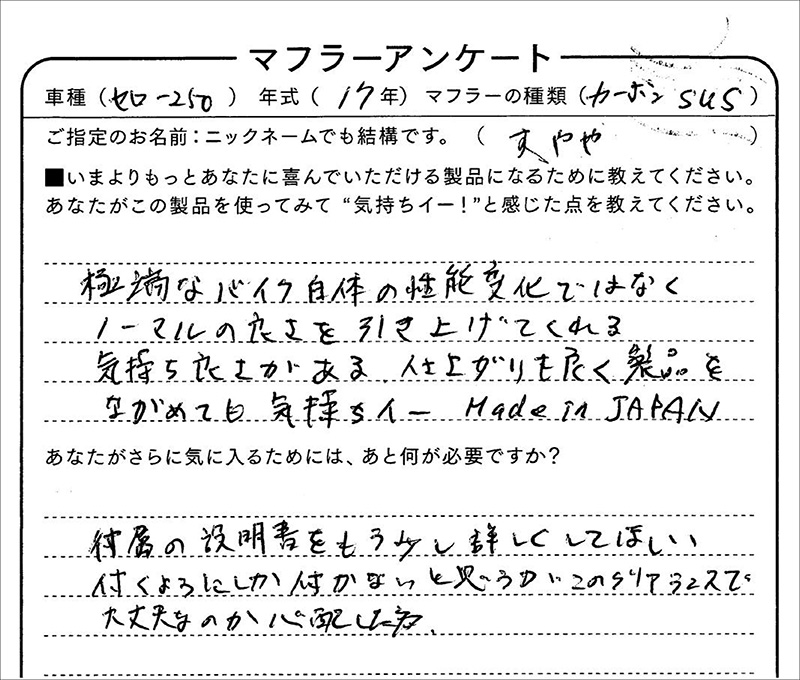 マフラーアンケート
車種（セロー250） 年式（17年）マフラーの種類（カーボン SUS）
ご指定のお名前：ニックネームでも結構です。（すぃやや）
■いまよりもっとあなたに喜んでいただける製品になるために教えてください。
あなたがこの製品を使ってみて “気持ちイー！”と感じた点を教えてください。
極端なバイク自体の性能変化ではなく
ノーマルの良さを引き上げてくれる
気持ち良さがある。仕上がりも良く製品を
ながめても気持ちイー Made in JAPAN
あなたがさらに気に入るためには、あと何が必要ですか？
付属の説明書をもう少し詳しくしてほしい
付くようにしか付かないと思うがこのクリアランスで
大丈夫なのか心配した